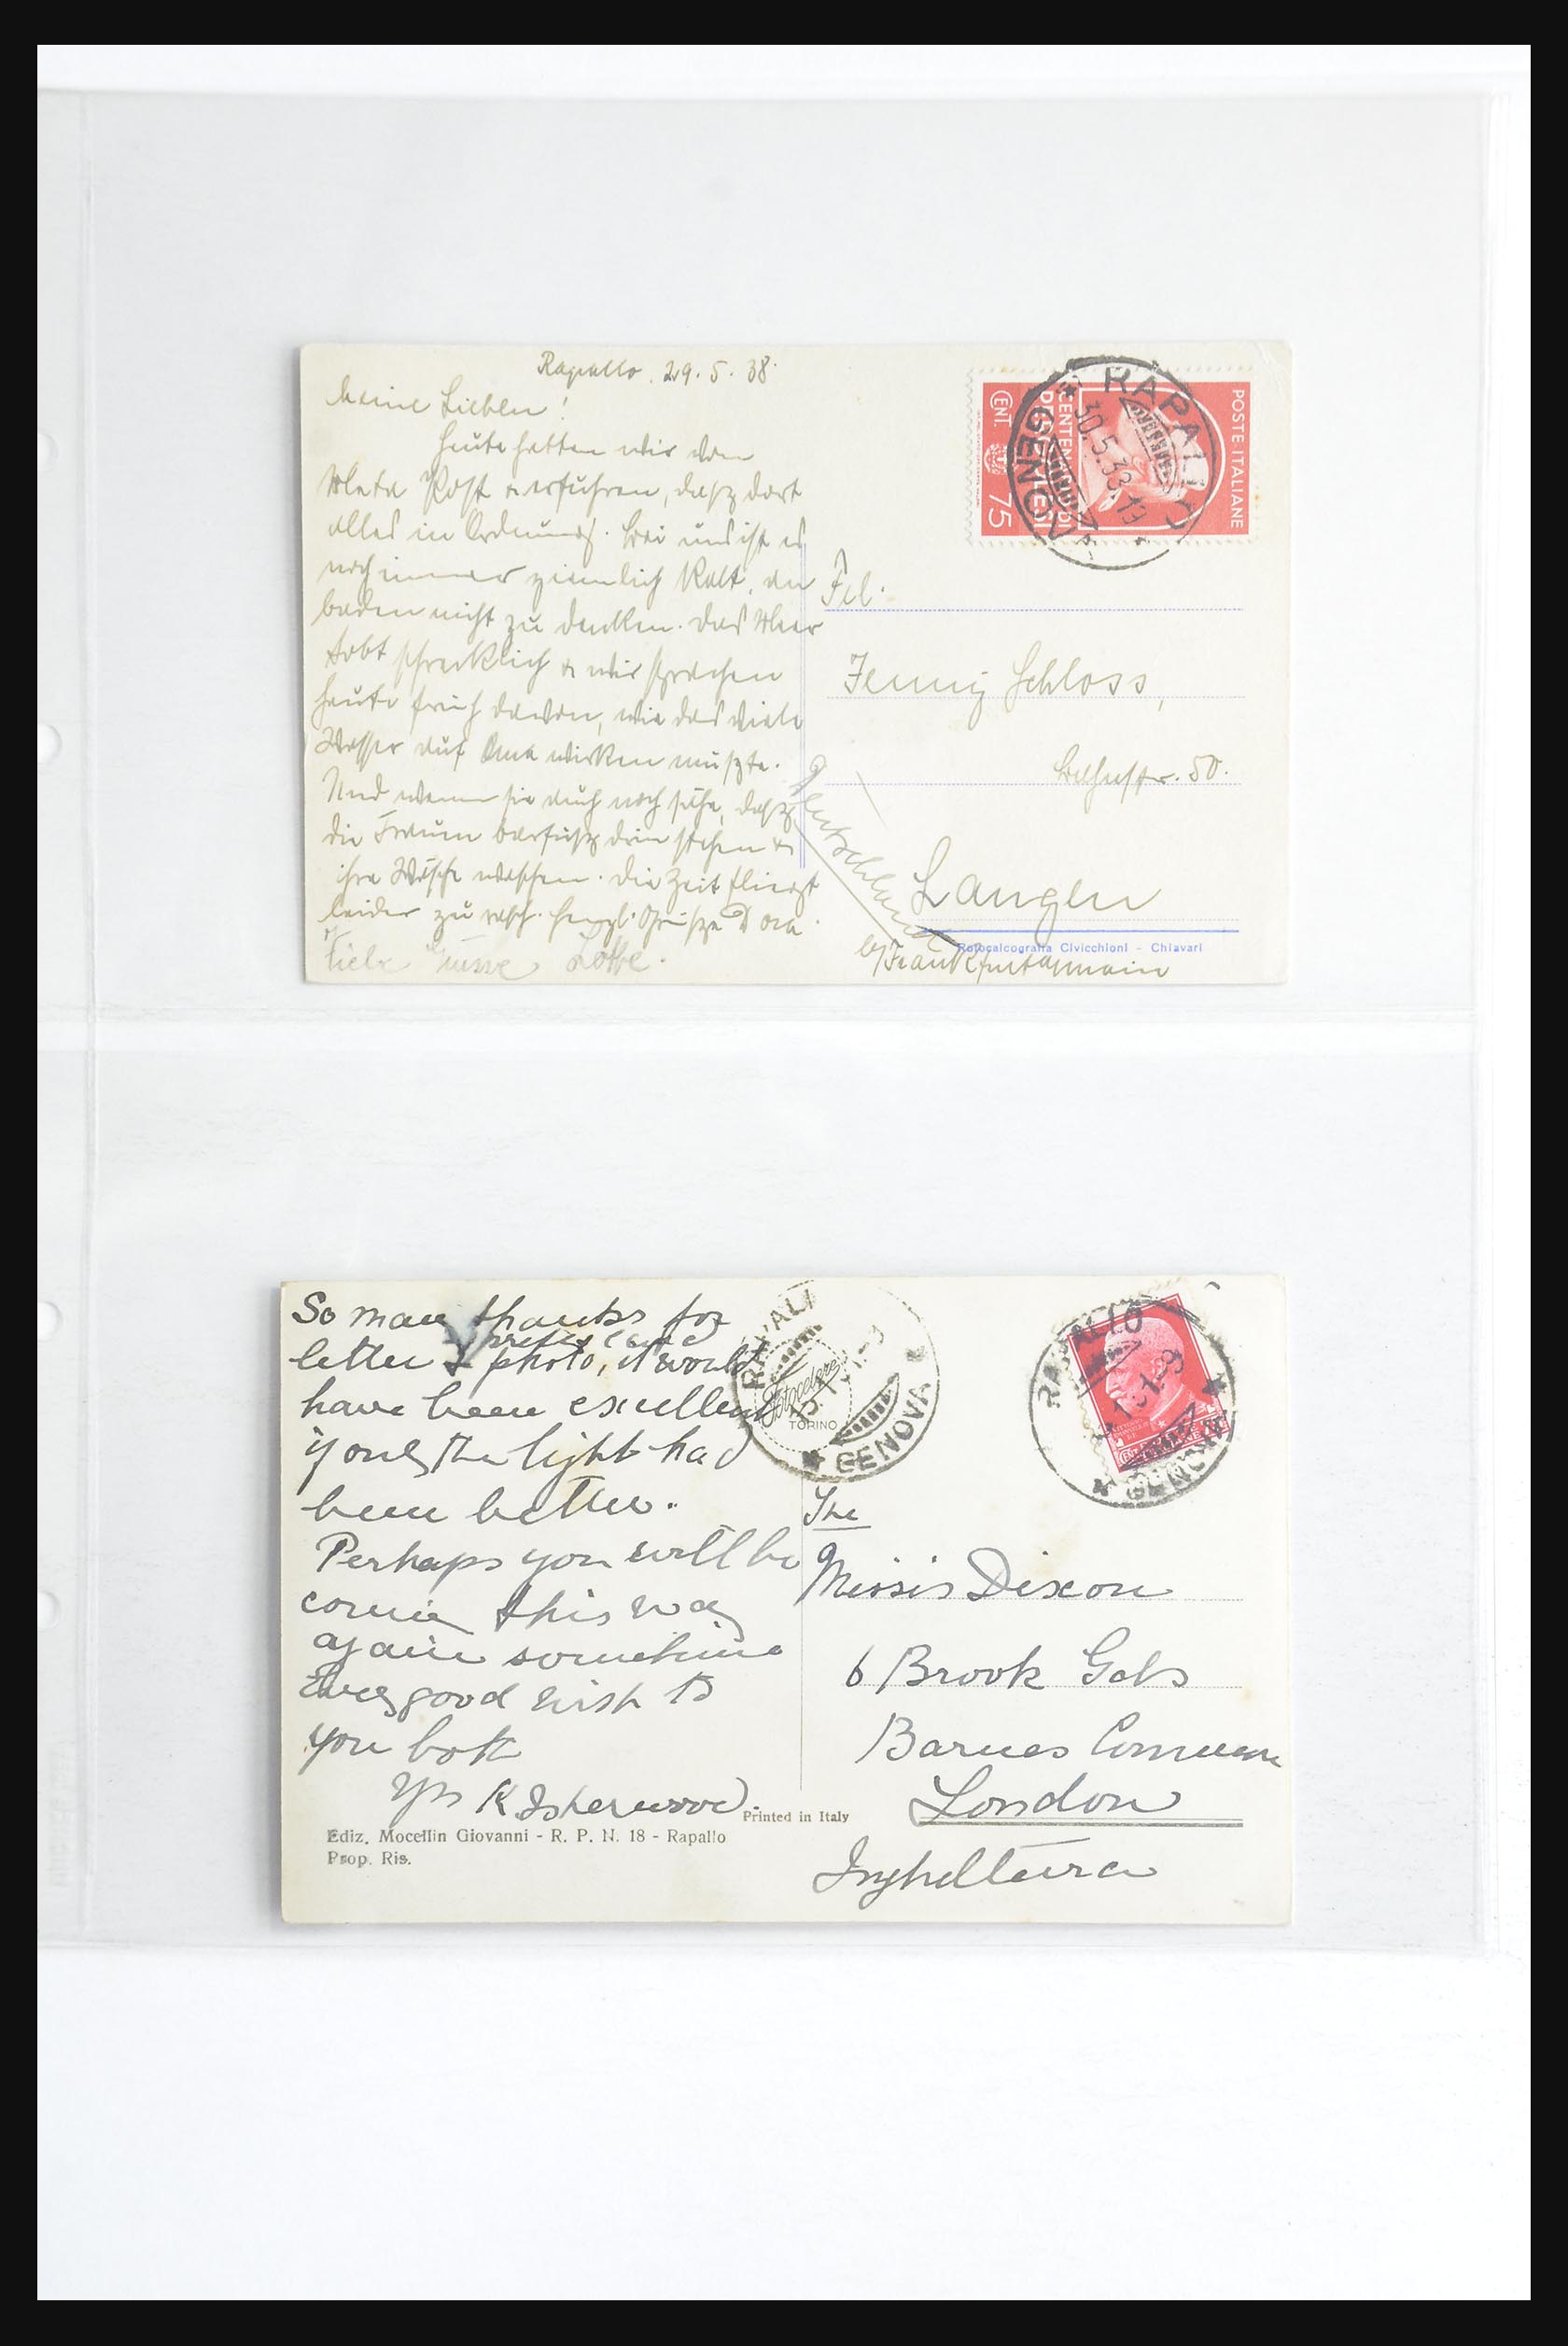 Rapallo. 29.5.38.
Meine Lieben!
Heute hatten wir von
Meta Post & erfuhren, dasz dort
alles in Ordnung. Bei uns ist es
noch immer ziemlich kalt, an
baden nicht zu denken. Das Meer
tobt schrecklich & wir sprachen
heute früh davon, wie das viele
Wasser auf Oma wirken müszte.
Und wenn sie auch noch sähe, dasz
die Frauen barfusz drin stehen &
ihre Wäsche waschen. Die Zeit fliegt
leider zu rasch. Herzl. Grüsze Dora.
liebe Grüsse Lotte.
POSTE ITALIANE
CENT. 75
RAPALLO
GENOVA
Frl.
Jenny Schloss,
Bahnstr. 50.
Langen
b/Frankfurt a/main
Deutschland
Rotocalcografia Civicchioni - Chiavari
So many thanks for
pretty card
letter & photo, it would
have been excellent
if only the light had
been better.
Perhaps you will be
coming this way
again sometime
Every good wish to
you both
Yrs K Isherwood.
Printed in Italy
Ediz. Mocellin Giovanni - R. P. N. 18 - Rapallo
Prop. Ris.
RAPALLO
GENOVA
Fotocelere
TORINO
RAPALLO
GENOVA
The
Missis Dixon
6 Brook Gets
Barnes Common
London
Inghilterra